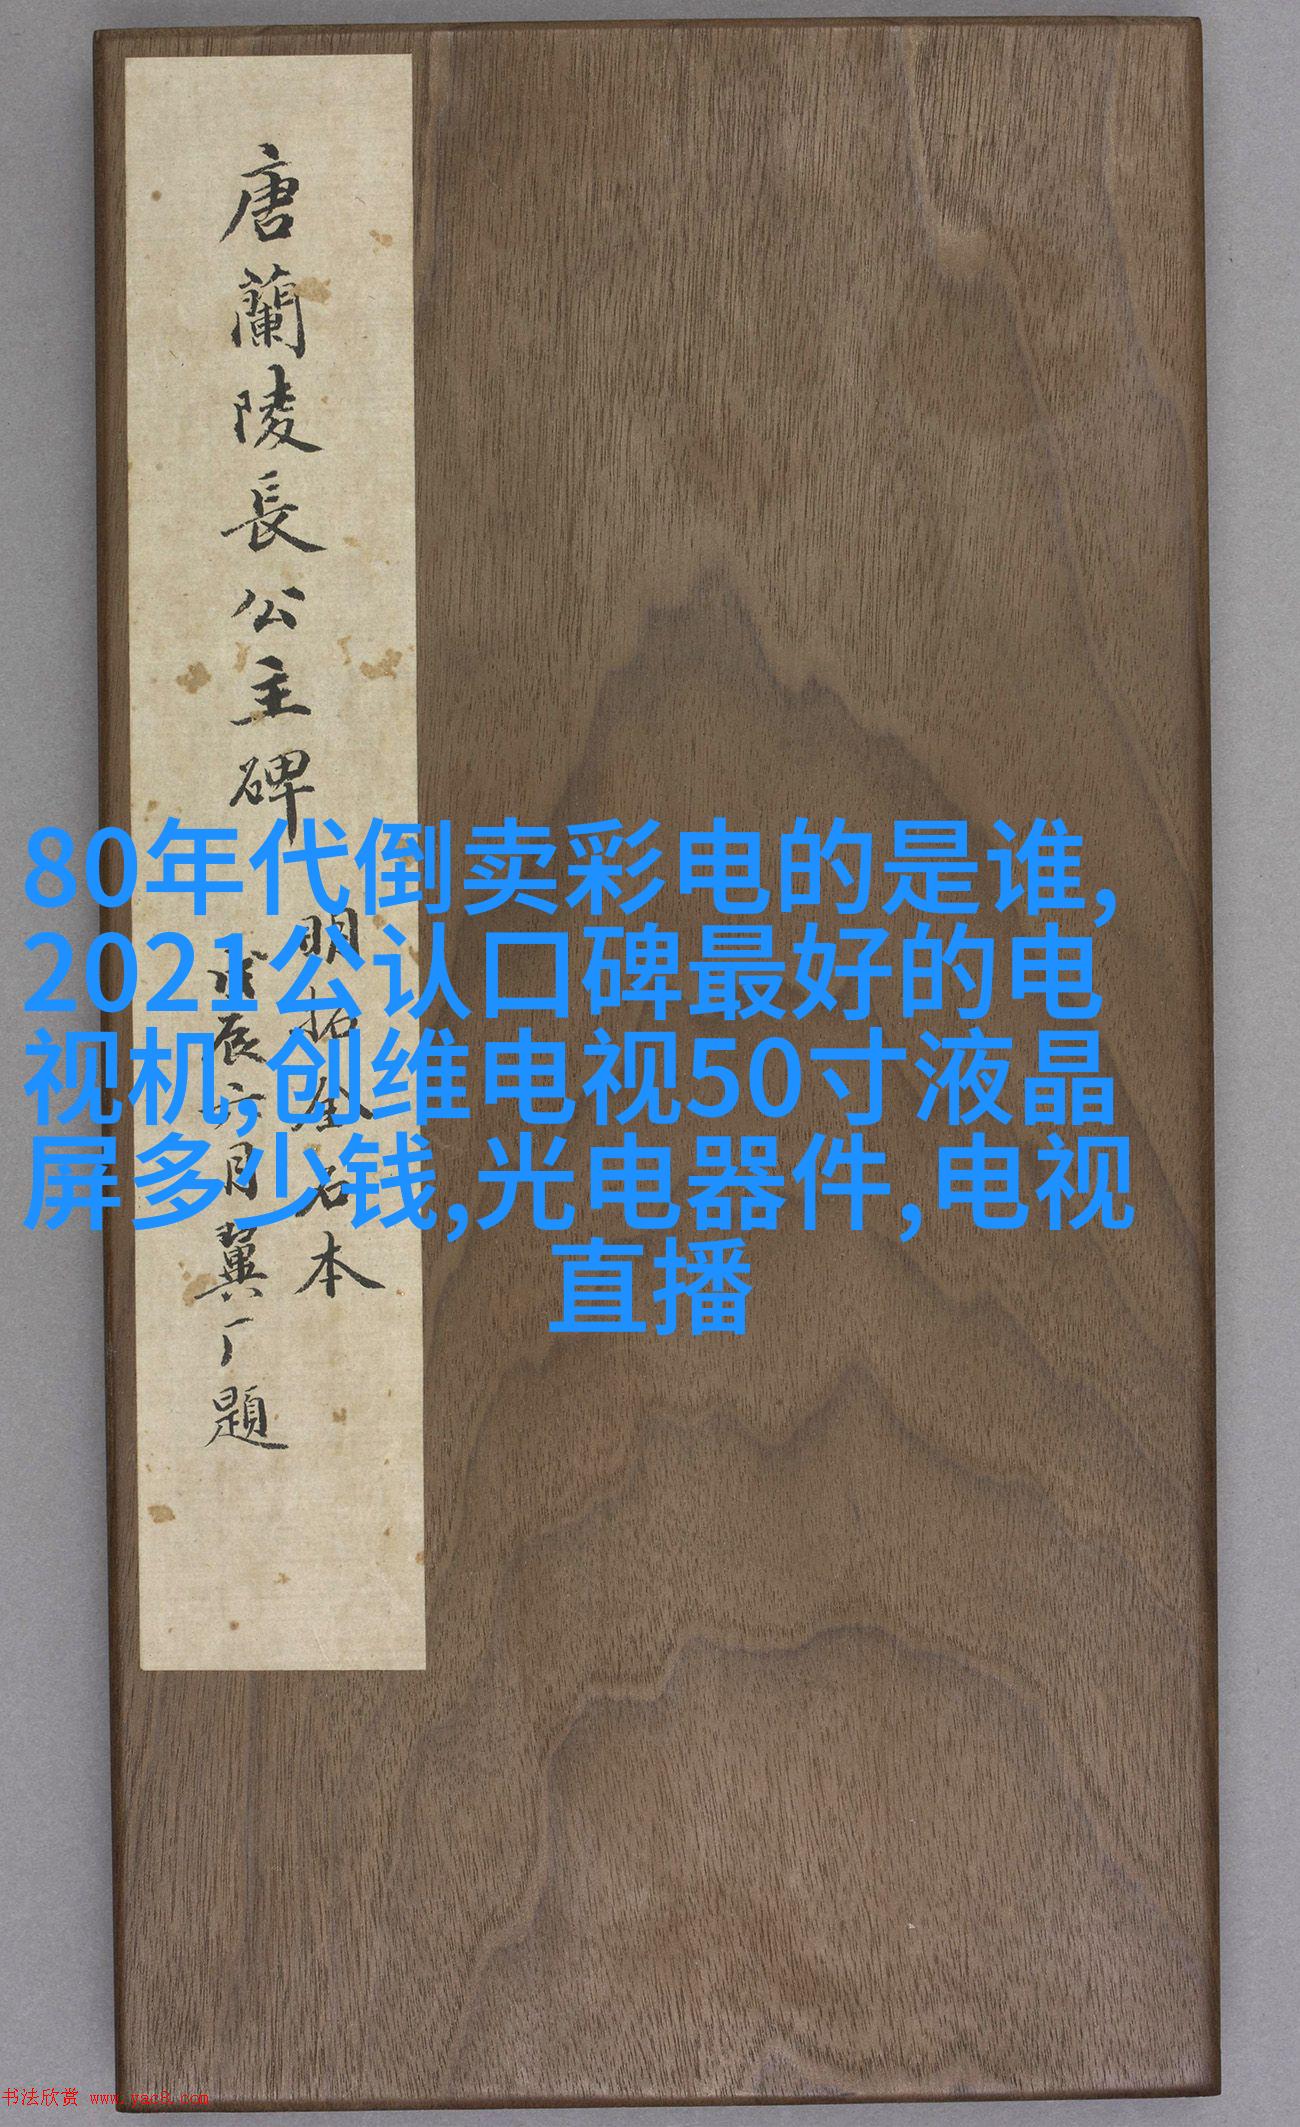 唐蘭陵長公主碑
明拓全石本
戊辰六月翼厂題
80年代倒卖彩电的是谁,
2021公认口碑最好的电
视机,创维电视50寸液晶
屏多少钱,光电器件,电视
直播
书法欣赏 www.yac8.com